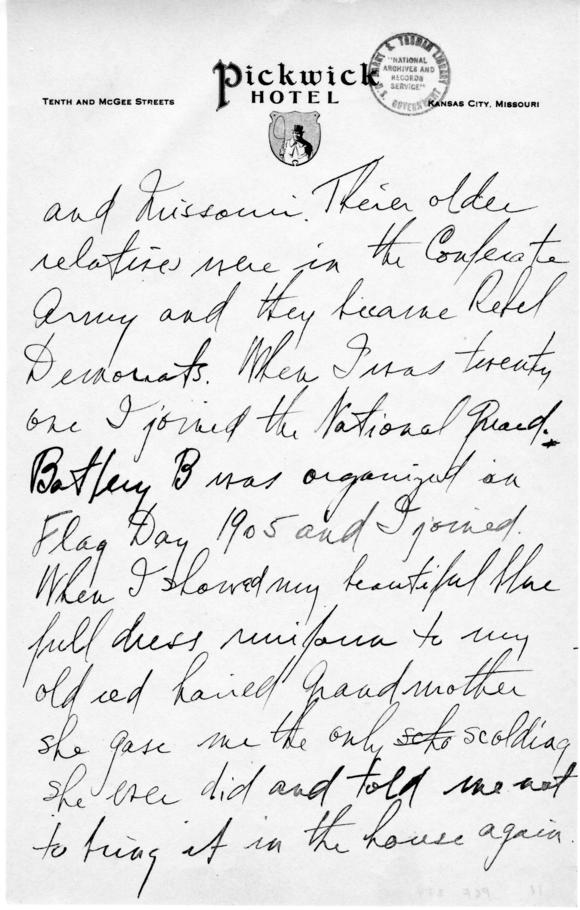 Pickwick
HOTEL
TENTH AND MCGEE STREETS
KANSAS CITY, MISSOURI
HARRY S. TRUMAN LIBRARY
"NATIONAL
ARCHIVES AND
RECORDS
SERVICE"
U.S. GOVERNMENT
and Missouri. Their older
relatives were in the Conferate
Army and they became Rebel
Democrats. When I was twenty
one I joined the National Guard.
Battery B was organized on
Flag Day 1905 and I joined.
When I showed my beautiful blue
full dress uniform to my
old red haired Grandmother
she gave me the only scho scolding
she ever did and told me not
to bring it in the house again.